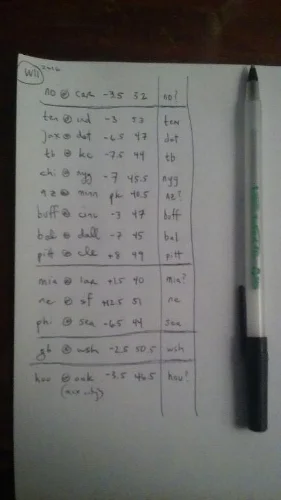 W11
no @ car -3.5 52 no?
ten @ ind -3 53 ten
jax @ det -6.5 47 det
tb @ kc -7.5 44 tb
chi @ nyg -7 45.5 nyg
az @ minn pk 40.5 az?
buff @ cinc -3 47 buff
bal @ dall -7 45 bal
pitt @ cle +8 49 pitt
mia @ lar +1.5 40 mia?
ne @ sf +12.5 51 ne
phi @ sea -6.5 44 sea
gb @ wsh -2.5 50.5 wsh
hou @ oak -3.5 46.5 hou?